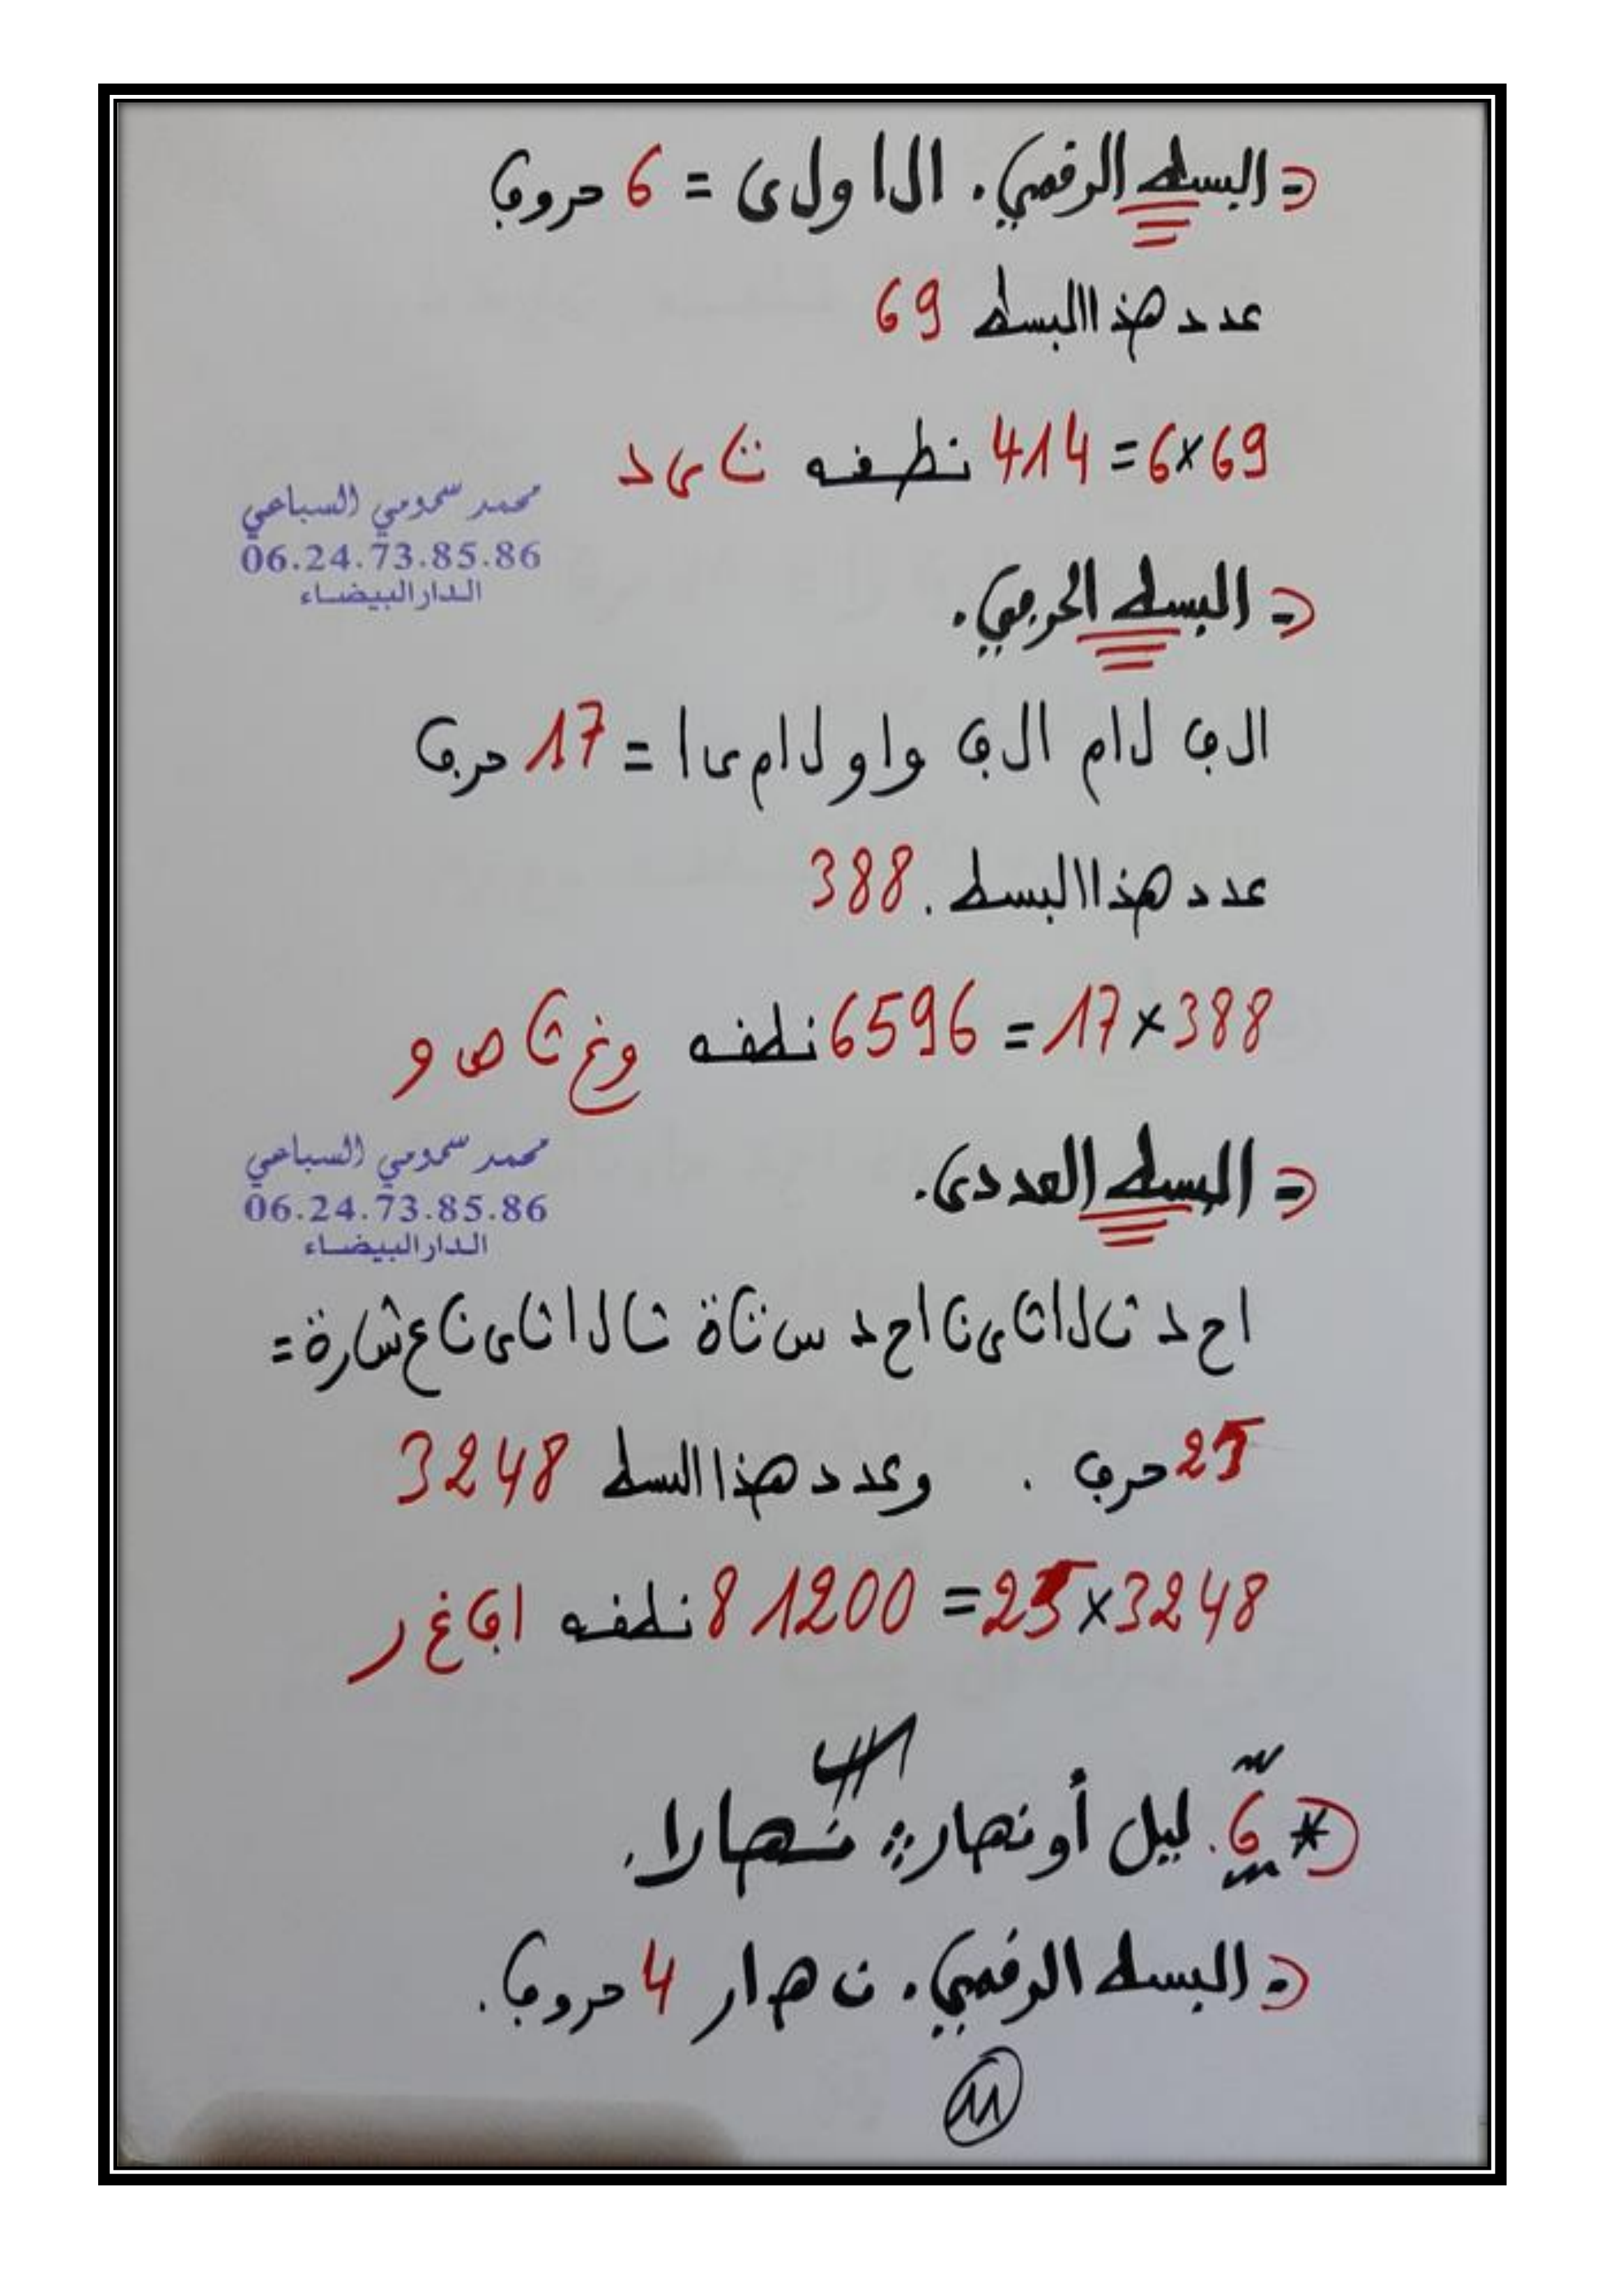 = البسط الرقمي. ال ا و ل ى = 6 حروف
عدد هذا البسط 69
69×6= 414 نطقه ت ي د
محمد سمومي السباعي
06.24.73.85.86
الدار البيضاء
= البسط الحرفي.
الف لام الف واو لام يا = 17 حرف
عدد هذا البسط. 388
388×17 = 6596 نطقه وغ ث ص و
محمد سمومي السباعي
06.24.73.85.86
الدار البيضاء
= البسط العددي.
ا ح د ث ل ا ث ي ن ا ح د س ت ة ث ل ا ث ي ن ع ش ر ة =
25 حرف . وعدد هذا البسط 3248
3248×25= 81200 نطقه ا ف غ ر
* 6. ليل أو نهار؟: نهارا.
= البسط الرقمي. ن ه ا ر 4 حروف.
11